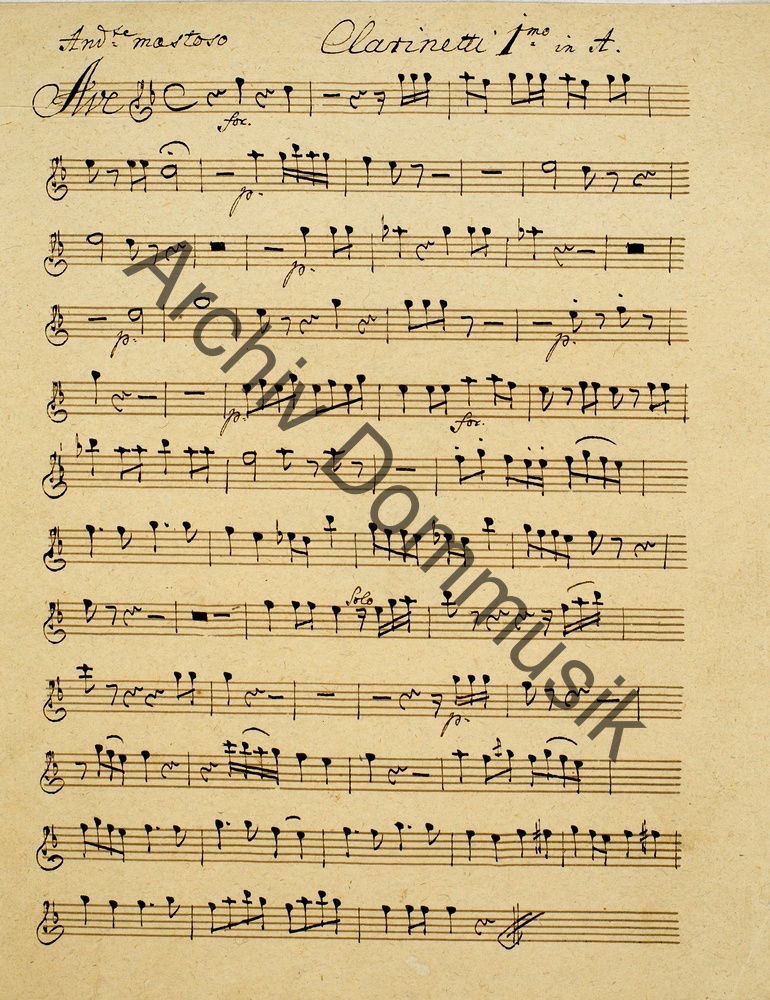 And.te maestoso Clarinetti 1.mo in A.
Ave
for.
p.
p.
p. p.
p. for.
Solo
p.
Archiv Dommusik